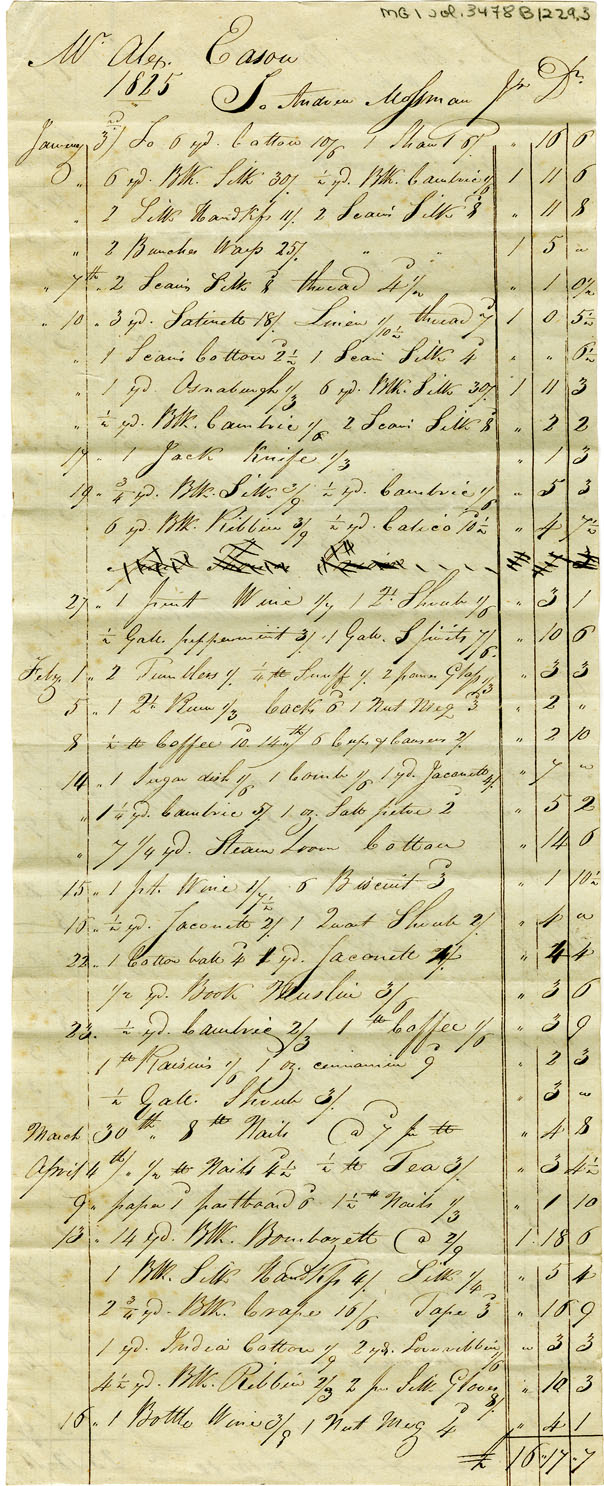 MG1 vol. 3478 B1229.3
Mr Alex. Eason
1825
To Andrew Mossman Jr Dr.
January 3rd To 6 yd. Cotton 10/6 1 Shawl 6/ " 16 6
" 6 yd. Blk. Silk 30/. ½ yd. Blk. Cambric 1/6 1 11 6
" 2 Silk Handkfs 11/. 2 Scains Silk 8d " 11 8
" 2 Bunches Warp 25/. " " 1 5 "
" 7th " 2 Scains Silk 8d thread 4½d " 1 0½
" 10 " 3 yd. Satinett 18/. Linen 1/10½ thread 7d 1 0 5½
" 1 Scain Cotton 2½ 1 Scain Silk 4d " " 6½
" 1 yd. Osnaburgh 1/3 6 yd. Blk. Silk 30/. 1 11 3
" ½ yd. Blk. Cambric 1/6 2 Scain Silk 8d " 2 2
17 " 1 Jack Knife 1/3 " 1 3
19 " ¾ yd. Blk. Silk 3/9 ½ yd. Cambric 1/6 " 5 3
6 yd Blk Ribbin 3/9 ½ yd. Calico 10½d " 4 7½
27 " 1 pint Wine 1/7 1 Qt Shrub 1/6 " 3 1
½ Gall. peppermint 3/. 1 Gall. Spirits 7/6 " 10 6
Feby 1 " 2 Tumblers 1/. ¼ lb Snuff 1/. 2 panes Glass 1/3 " 3 3
5 " 1 Qt Rum 1/3 Cacks 6d 1 Nut Meg 3d " 2 "
8 " ½ lb Coffee 10d 14th 6 Cups & Causers 2/. " 2 10
14 " 1 Sugar dish 1/6 1 Comb 1/6 1 yd. Jaconett 4/. " 7 "
" 1¼ yd. Cambric 5/. 1 oz. Salt petre 2d " 5 2
" 7 1/4 yd. Steam Loom Cotton " 14 6
15 " 1 pt. Wine 1/7½ 6 Biscuit 3d " 1 10½
16 " ½ yd. Jaconett 2/. 1 Quart Shrub 2/. " 4 "
22 " 1 Cotton ball 4d 1 yd. Jaconett 4/. " 4 4
1/2 yd. Book Muslin 3/6 " 3 6
23. ½ yd. Cambric 2/3 1 lb Coffee 1/6 " 3 9
1 lb Raisins 1/6 1 oz. cinnamin 9d " 2 3
½ Gall. Shrub 3/. " 3 "
March 30th " 8 lb Nails @ 7 pr lb " 4 8
April 4th " 1/2 lb Nails 4½ ½ lb Tea 3/. " 3 4½
9 " paper 1d pastboard 6d 1½ lb Nails 1/3 " 1 10
13 " 14 yd. Blk. Bombazett @ 2/9 1 18 6
1 Blk. Silk Handkfs 4/. Silk 1/4 " 5 4
2¾ yd. Blk. Crape 16/6 Tape 3d " 16 9
1 yd. India Cotton 1/9 2 yds. Loveribbin 1/6 " 3 3
4½ yd. Blk. Ribbin 2/3 2 pr Silk Gloves 8/. " 10 3
16 " 1 Bottle Wine 3/9 1 Nut Meg 4d " 4 1
16 " 17 " 7